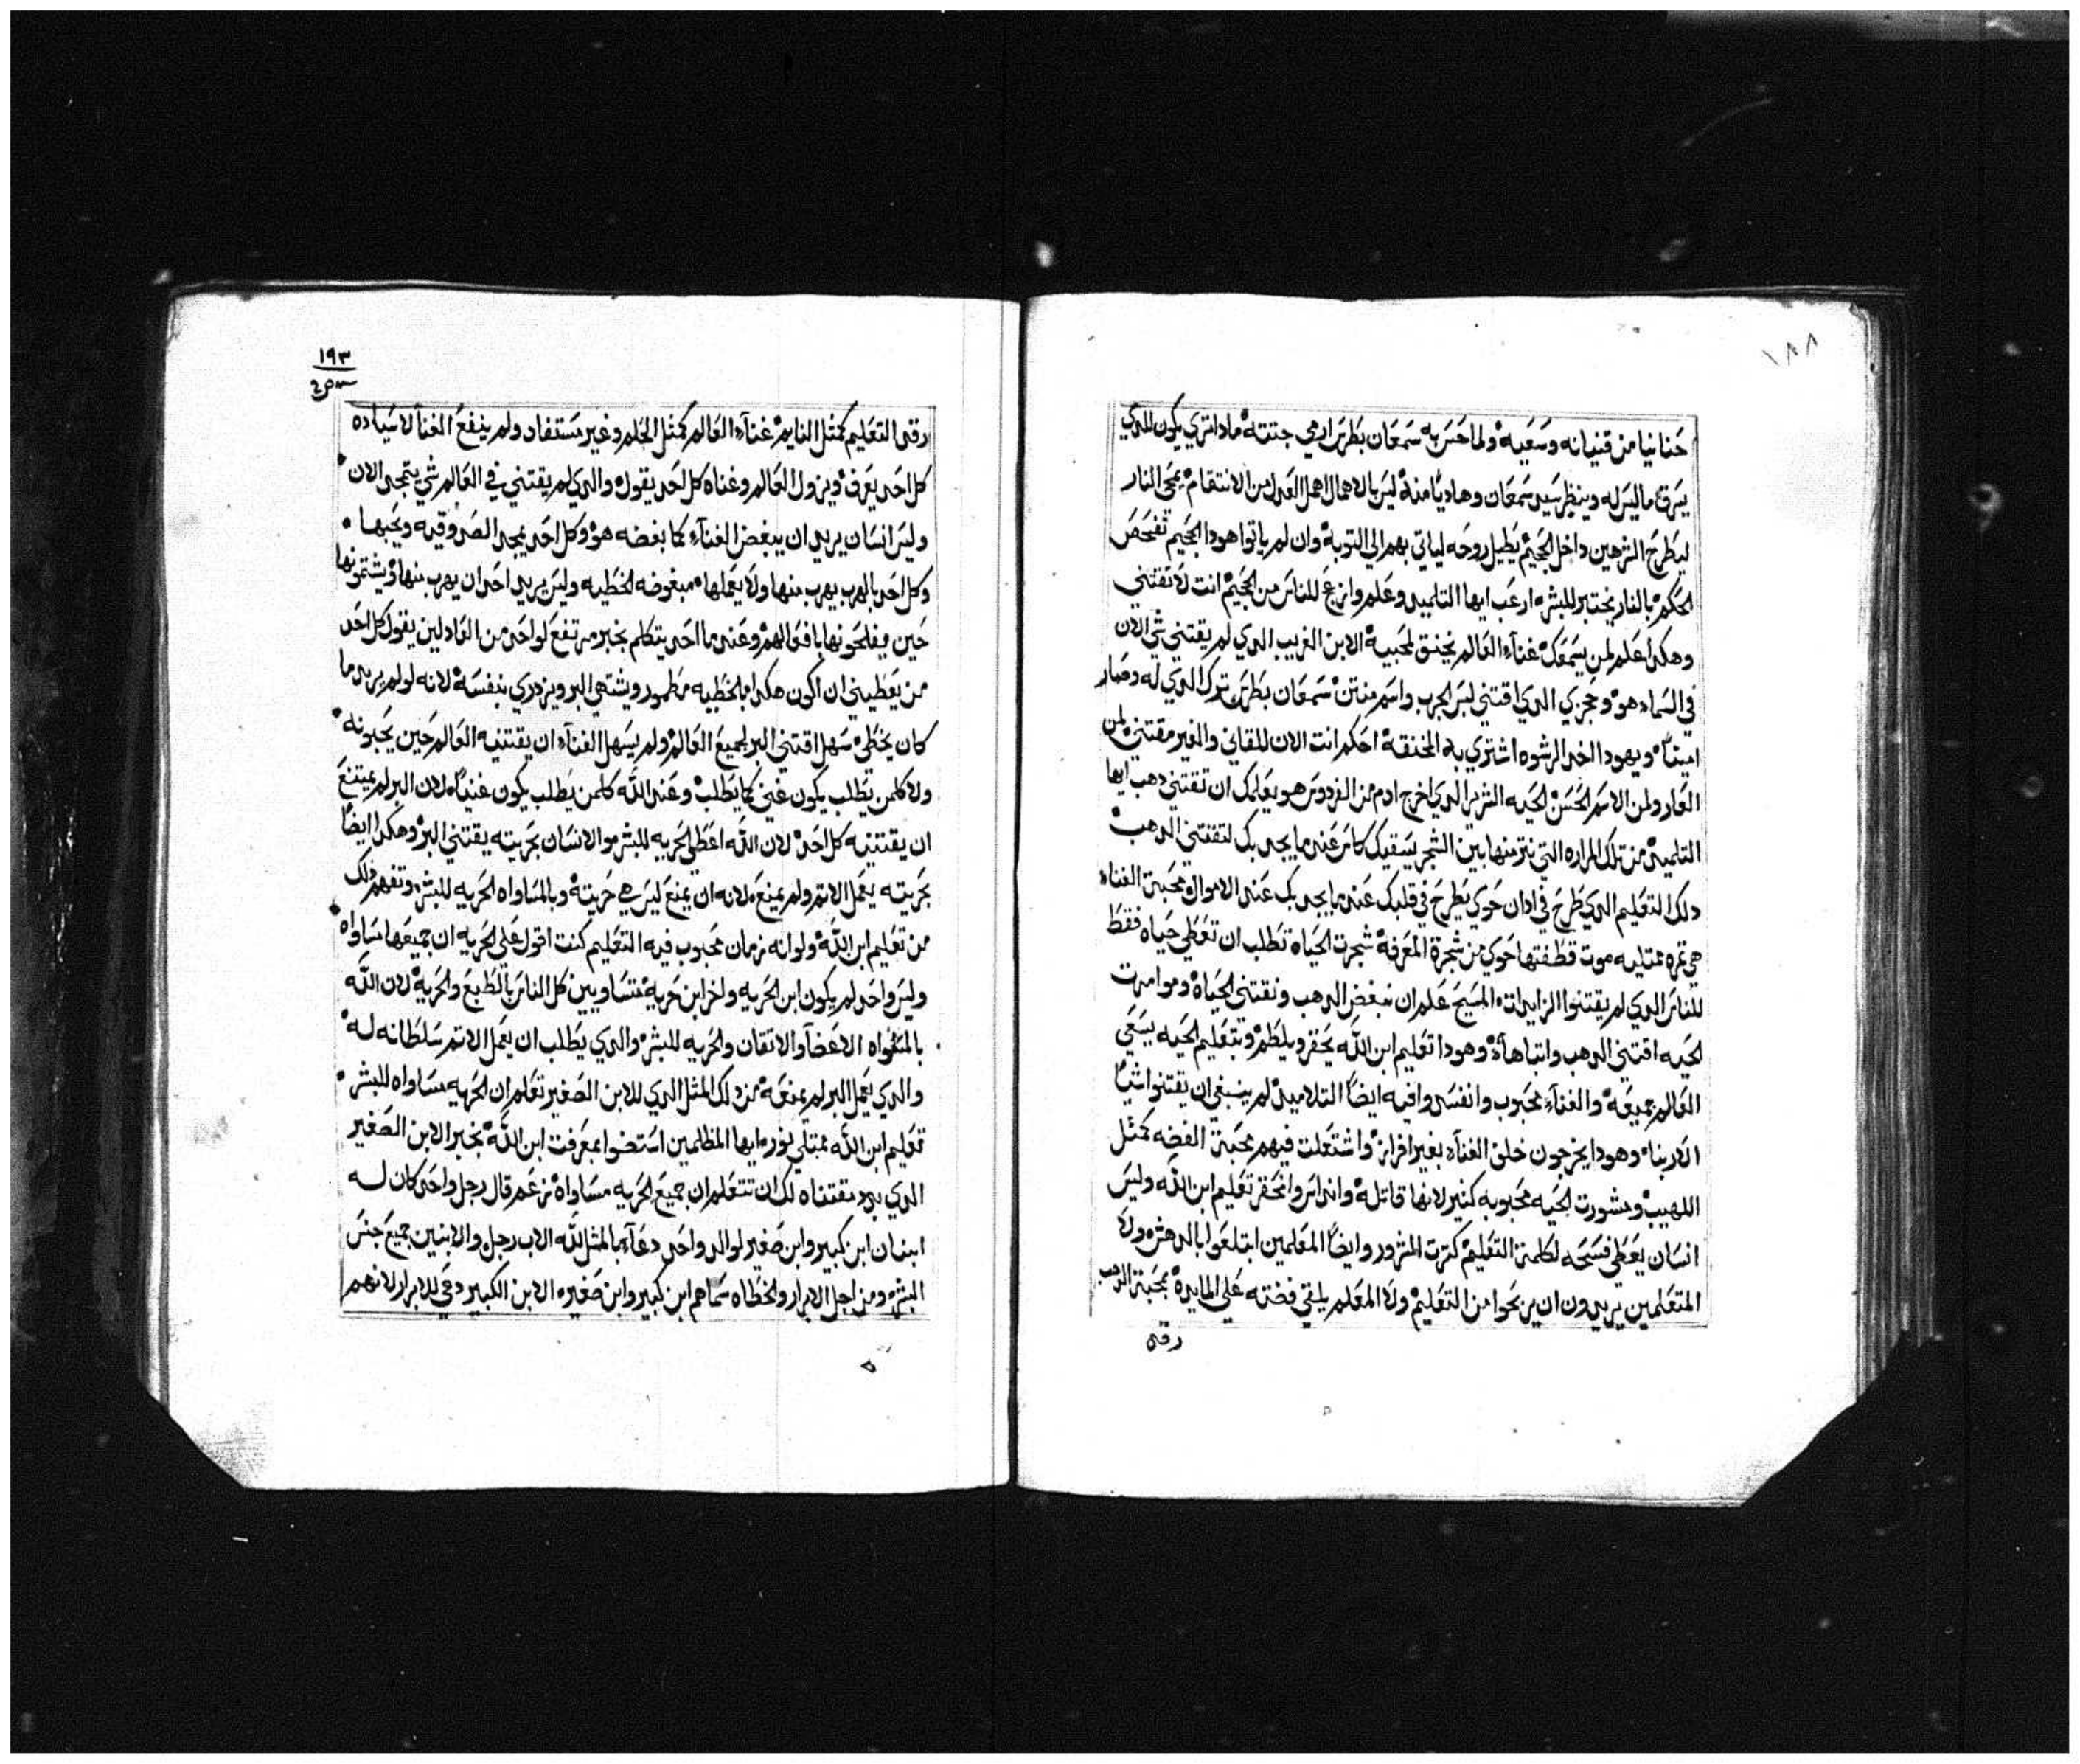 ١٨٨
حنانيا من قنيانه وسعيه ولما حس به سمعان بطرس ارمي جتته ماداتري يكون للدي
يسرق ماليس له وينظر سيدي سمعان وهاديًا منه ليس بالاهمال اهمل العدل من الانتقام يمجي النار
ليطرح الشرهين داخل الجحيم يطيل روحه لياتي بهم الي التوبه وان لم ياتوا هودا الجحيم تفحص
الحكم بالنار يختبر للبشر ارعب ايها التلميد وعلم وازعج للناس من الجحيم انت لا تقتني
وهكدا علم لمن يسمعك غناء العالم يخنق لمحبيه الابن الغريب الدي لم يقتني شي الان
في السماء هو وحجزي الدي اقتني لبس الجرب واسم منتن سمعان بطرس ترك الدي له وصار
امينًا ويهودا اخد الرشوه اشتري به المخنقه احكم انت الان للقاني والغير مقتني لمن
العار ولمن الاسم الحسن الحيه الشرير الدي اخرج ادم من الفردوس هو يعلمك ان تقتني دهب ايها
التلميد من تلك المراره التي بين الشجر يسقيك كاس عندما يجد بك لتقتني الدهب
دلك التعليم الدي طرح في ادان حوي يطرح في قلبك عندما يجد بك عندي الاموال محبة الغناء
هي تمره ممتليه موت قطفتها حوي من شجرة المعرفه شجرت الحياه تطلب ان تعطي حياه فقط
للناس الدي لم يقتنوا الزايدات المسيح علم ان نبغض الدهب ونقتني الحياه وموامرت
الحيه اقتني الدهب وانتباها وهودا تعليم ابن الله يحقر ويلطم وبتعليم الحيه يسعي
العالم جميعه والغناء محبوب وانفسدوا فيه ايضًا التلاميد لم ينبغي ان يقتنوا شيًا
الادريناء وهودا يخرجون خلف الغناء بغير افراز واشتعلت فيهم محبة الفضه كمثل
اللهيب ومشورت الحيه محبوبه كثير لانها قاتله واندا وانحقر تعليم ابن الله وليس
انسان يعطي فسحه لكلمة التعليم كترت الشرور وايضًا المعلمين ابتلعوا بالدهش ولا
المتعلمين يريدون ان يربحوا من التعليم ولا المعلم يلقي فضته علي المايده بمحبة الدهب
رقد
١٩٣
رقد التعليم كمثل النايم غناء العالم كمثل الحلم وغير مستفاد ولم ينفع الغنا لاسياده
كل احد يعرف ويزول العالم وغناه كل احد يقول والدي لم يقتني في العالم شي يتمجد الان
وليس انسان يريد ان يبغض الغناء كما بغضه هو وكل احد يمجد الصدوقيه ويحبها
وكل احد بالهرب يهرب منها ولا يعملها مبغوضه الخطيه وليس يريد احد ان يهرب منها ويشتمونها
حين يفلحونها بافعالهم وعندما احد يتكلم بخبر مرتفع لواحد من العادلين يقول كل احد
من يعطيني ان اكون هكدا بالخطيه مطمور ويشتهي البر ويزدري بنفسه لانه لو لم يريد ما
كان يخطي سهل اقتني البر لجميع العالم ولم يسهل الغناء ان يقتنيه العالم حين يحبونه
ولا كلمن يطلب يكون غني كما يطلب وعند الله كلمن يطلب يكون غنيًا لان البر لم يمتنع
ان يقتنيه كل احد لان الله اعطي الحريه للبشر والانسان بحريته يقتني البر وهكدا ايضًا
بحريته يعمل الاتم ولم يمنع لانه ان يمنع ليس هي حريته وبالمساواه الحريه للبشر وتفهم دلك
من تعليم ابن الله ولو انه زمان محبوب فيه التعليم كنت اقول علي الحريه ان جميعها مساواه
وليس واحد لم يكون ابن الحريه واخر ابن حريه متساويين كل الناس بالطبع والحريه لان الله
بالمتقواه الاعضا والاتقان والحريه للبشر والدي يطلب ان يعمل الاتم سلطانه له
والدي يعمل البر لم يمنعه من دلك المثل الدي للابن الصغير تعلم ان الحريه مساواه للبشر
تعليم ابن الله ممتلي نور ايها المظلمين استضوا بمعرفت ابن الله بخبر الابن الصغير
الدي بدد مقتناه لك ان تتعلم ان جميع الحريه مساواه زعم قال رجل واحد كان له
ابنان ابن كبير وابن صغير لوالد واحد دعا بالمثل لله الاب رجل والابنين جميع جنس
البشر ومن اجل الابرار والخطاه سماهم ابن كبير وابن صغير الابن الكبير دعي للابرار لانهم